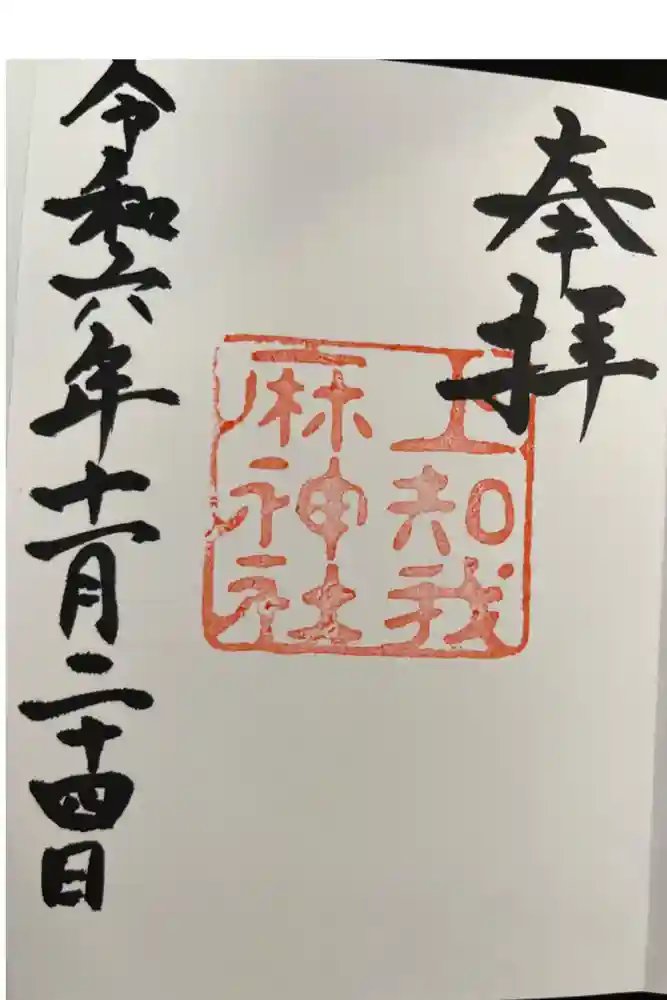 奉拝
上知我
麻神社
令和六年十一月二十四日